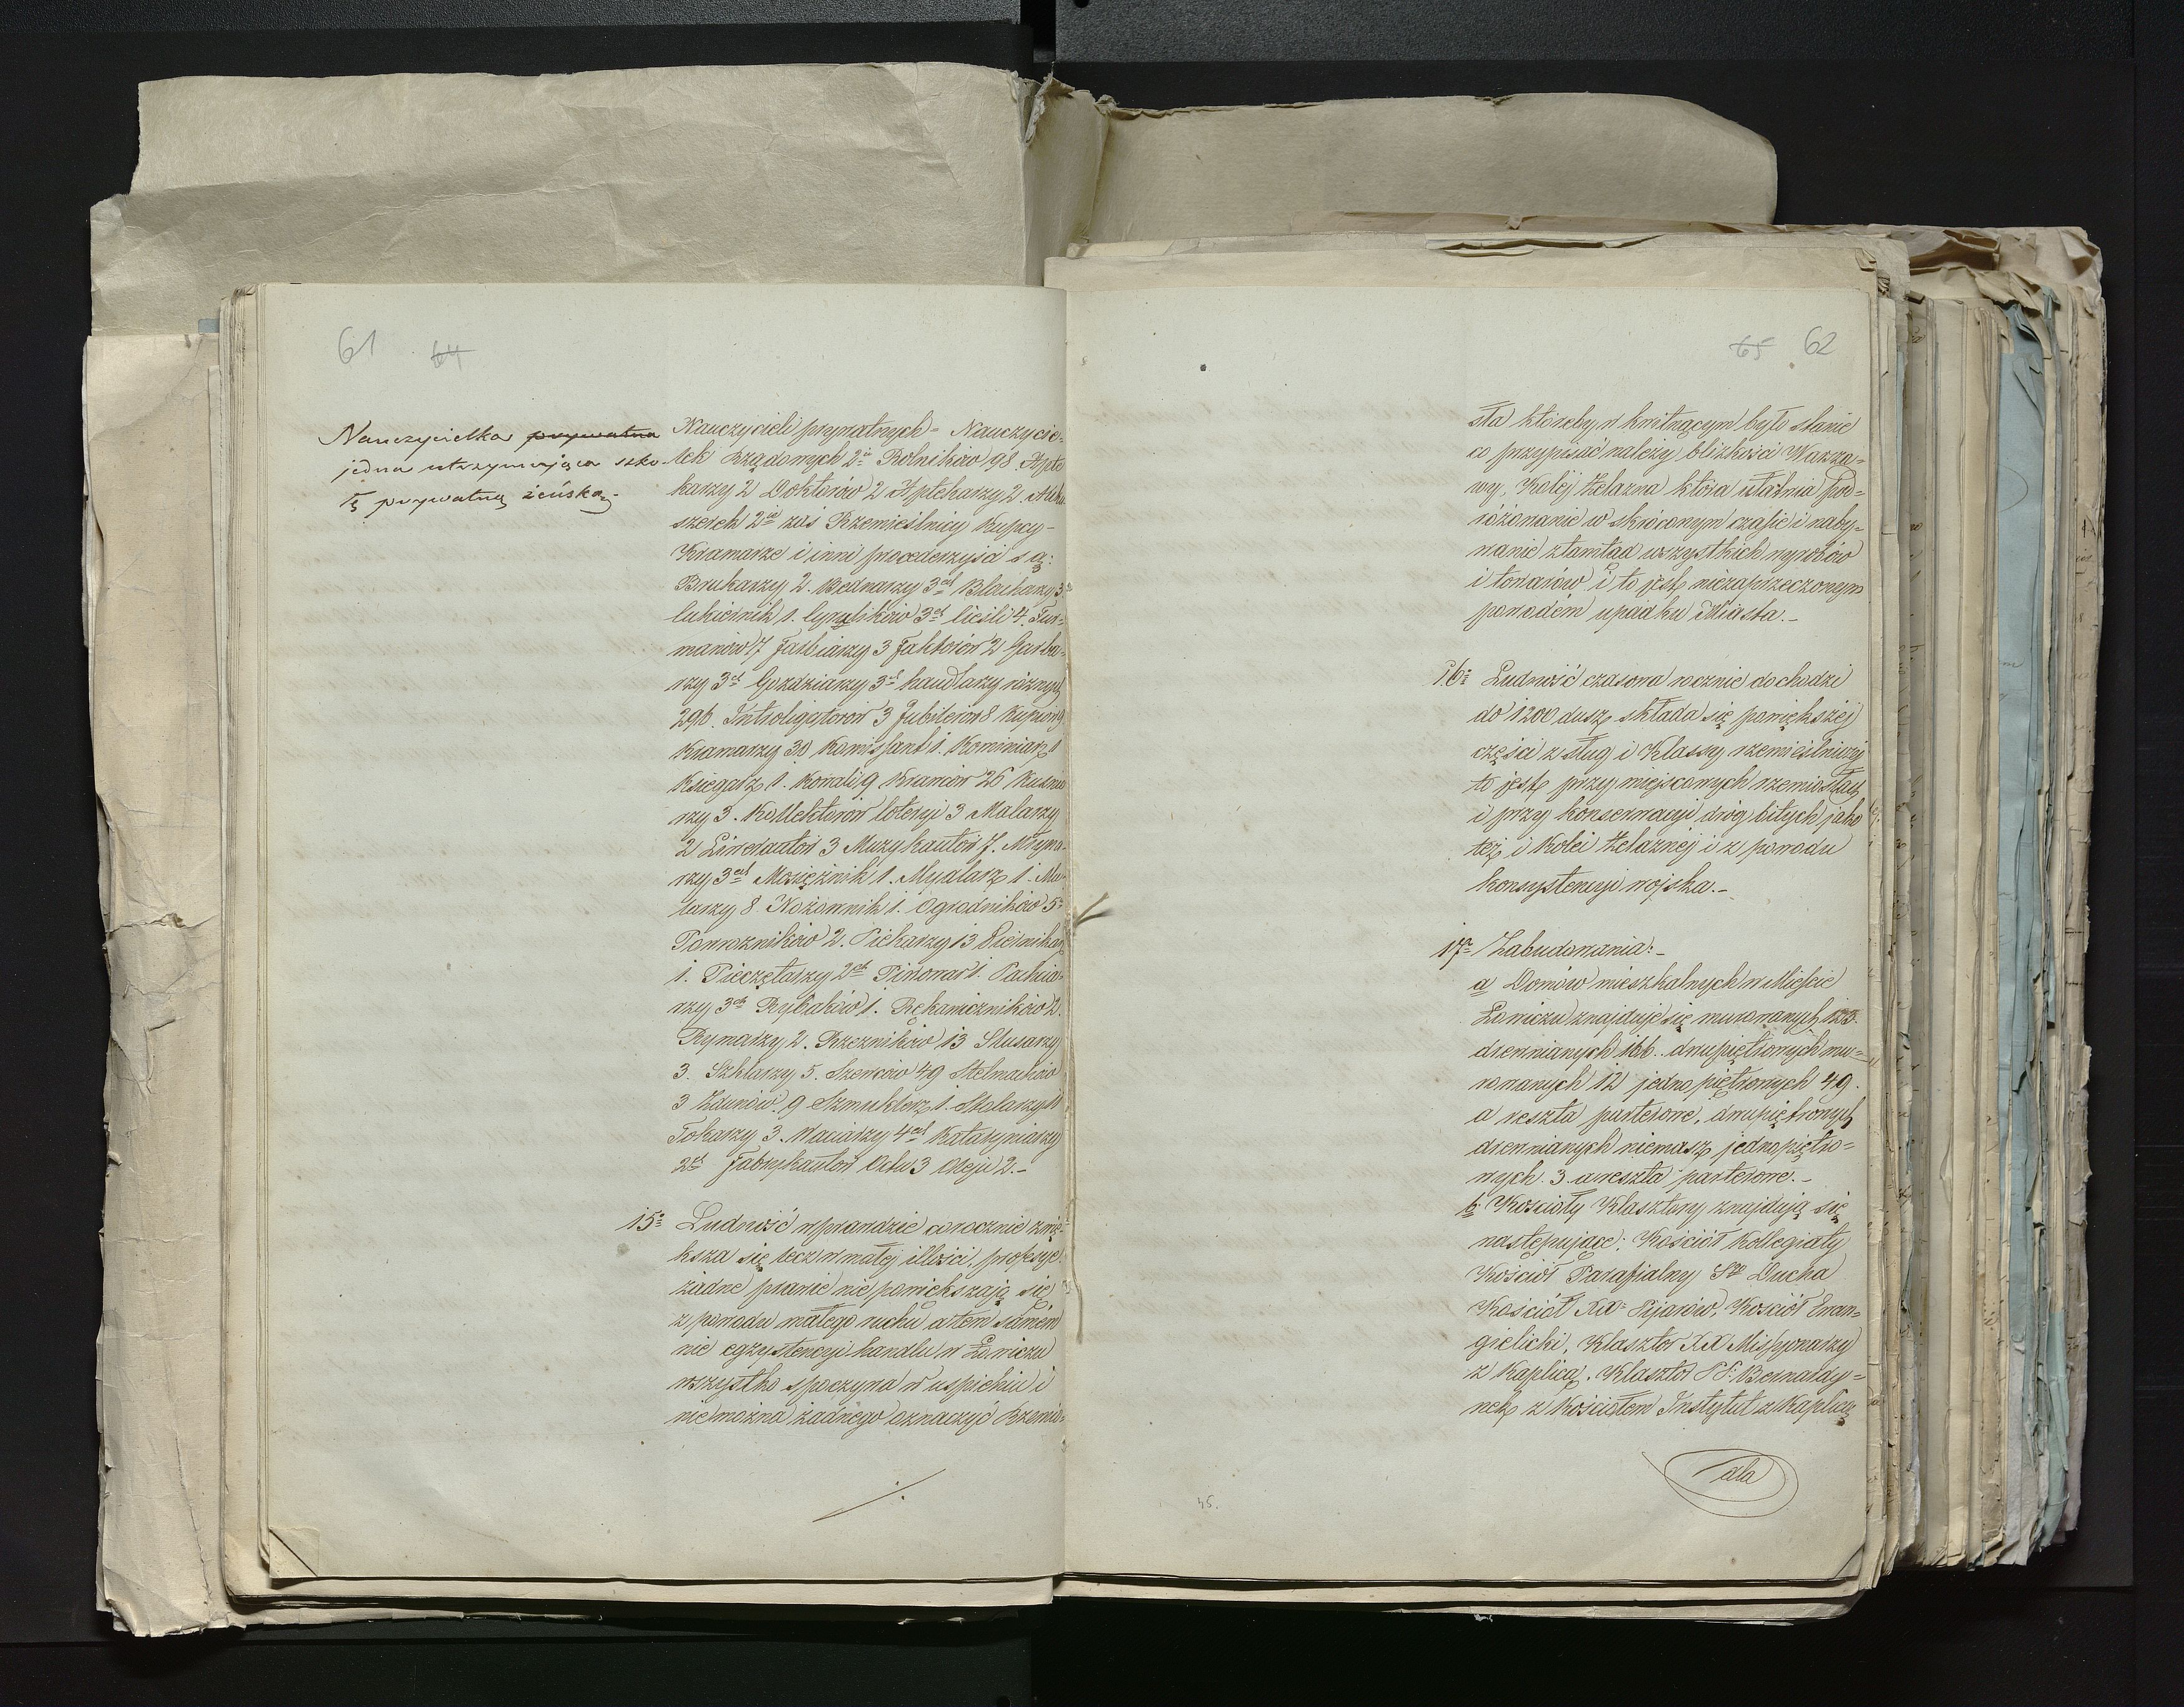 61 64
Nauczycielka prywatna
jedna utrzymująca szko-
łę prywatną żeńską.-
Nauczycieli prywatnych - Nauczycie-
lek Rządowych 2ie Rolników 98
karzy 2 Doktorów 2 Aptekarzy 2
szerek 2ie zaś Rzemieślnicy Kupcy -
Kramarze i inni procederzyści są:
Brukarzy 2. Bednarzy 3ch Blacharzy 3
Cukiernik 1. Cyrulików 3ch Cieśli 4. Fur-
manów 17 Farbiarzy 3 Faktorów 2 Garba-
rzy 3ch Gozdziarzy 3ch handlarzy różnych
296. Introligatorów 3 Jubilerów 8 Kupców 9
Kramarzy 30 Komissant 1. Kominiarz 1
Księgarz 1. Kowali 9 Krawców 26 Kusnie
rzy 3. Kollektorów loteryi 3 Malarzy
2 Liwerantów 3 Muzykantów 7. Młyna-
rzy 3ch Mosiężnik 1. Mydlarz 1. Mu-
larzy 8. Nożownik 1. Ogrodników 5ć
Powroźników 2. Piekarzy 13 Piernikarz
1. Pieczętarzy 2ch Piwowar 1. Pachcia-
rzy 3ch Rybaków 1. Rękawiczników 2.
Rymarzy 2. Rzezników 13 Slusarzy
3. Szklarzy 5. Szewców 49 Stelmachów
3 Zdunów 9 Szmuklerz 1. Stolarzy 11
Tokarzy 3. Waciarzy 4ch Kataryniarzy
2ch Fabrykantów Octu 3 Oleju 2.-
15o Ludność wprawdzie corocznie zwię-
ksza się lecz w małej illości, profesye
żadne prawie nie powiekszają się
z powodu małego ruchu a tem samém
nie egzystencyi handlu w Łowiczu
wszystko spoczywa w uspieniu i
nie można żadnego oznaczyć Rzemio-
65 62
sła któreby w kwitnącym było stanie
co przypisać należy blizkości Warza-
wy, Koléj Żelazna która ułatwia pod-
różowanie w skróconym czasie i naby-
wanie ztamtąd wszystkich wyrobów
i towarów i to jest niezaprzeczonym
powodém upadku Miasta.-
16o Ludność czasowa rocznie dochodzi
do 1200 dusz, składa się powiększej
części z sług i Klassy rzemieślniczej
to jest przy miejscowych rzemiosłach
i przy konserwacyi dróg bitych jako
też i Kolei Żelaznéj i z powodu
konsystencyi wojska.-
17o Zabudowania:-
a Domów mieszkalnych w Mieście
Łowiczu znajduje się murowanych 123.
drewnianych 166. dwupiętrowych mu-
rowanych 12 jedno piętrowych 49.
a reszta parterowe, dwupiętrowych
drewnianych niemasz, jednopiętro-
wych 3 a reszta parterowe.-
b Kościoły Klasztory znajdują się
następujące: Kościół Kollegiaty
Kościół Parafialny Sgo Ducha
Kościół Xx Pijarów, Kościół Ewan-
gielicki, Klasztor XX Missyonarzy
z Kaplicą. Klasztor PP. Bernardy-
nek z Kościołem Instytut z Kaplicą
dla
45.